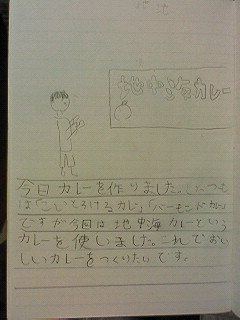 地中海カレー
今日カレーを作りました。いつも
は「こいとろけるカレー」「バーモンドカレー」
ですが今日は地中海カレーという
カレーを使いました。これでおい
しいカレーをつくりたいです。